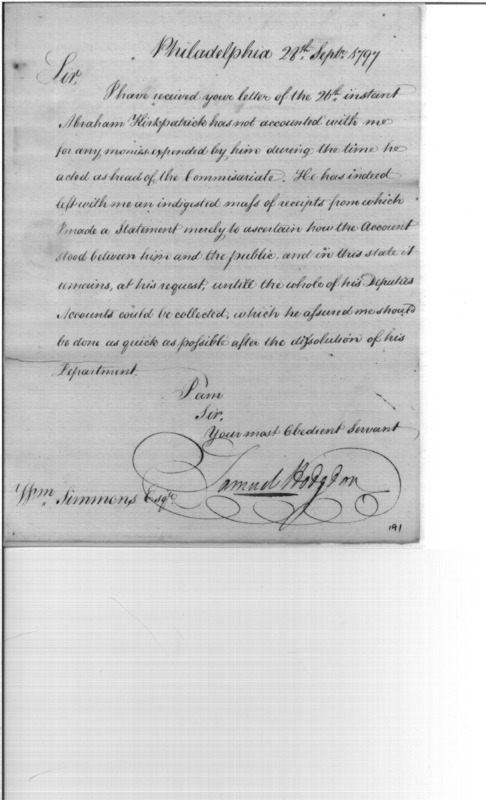 Philadelphia 28th. Septr. 1797
Sir,
I have received your letter of the 26th. instant
Abraham Kirkpatrick has not accounted with me
for any monies expended by him during the time he
acted as head of the Commisariate. He has indeed
left with me an indigested mass of receipts from which
I made a Statement merely to ascertain how the Account
stood between him and the public, and in this state it
remains, at his request, untill the whole of his Deputies
Accounts could be collected, which he assured me should
be done as quick as possible after the dissolution of his
Department.
I am
Sir,
Your most Obedient Servant
Samuel Hodgdon
Wm. Simmons Esqr.
191